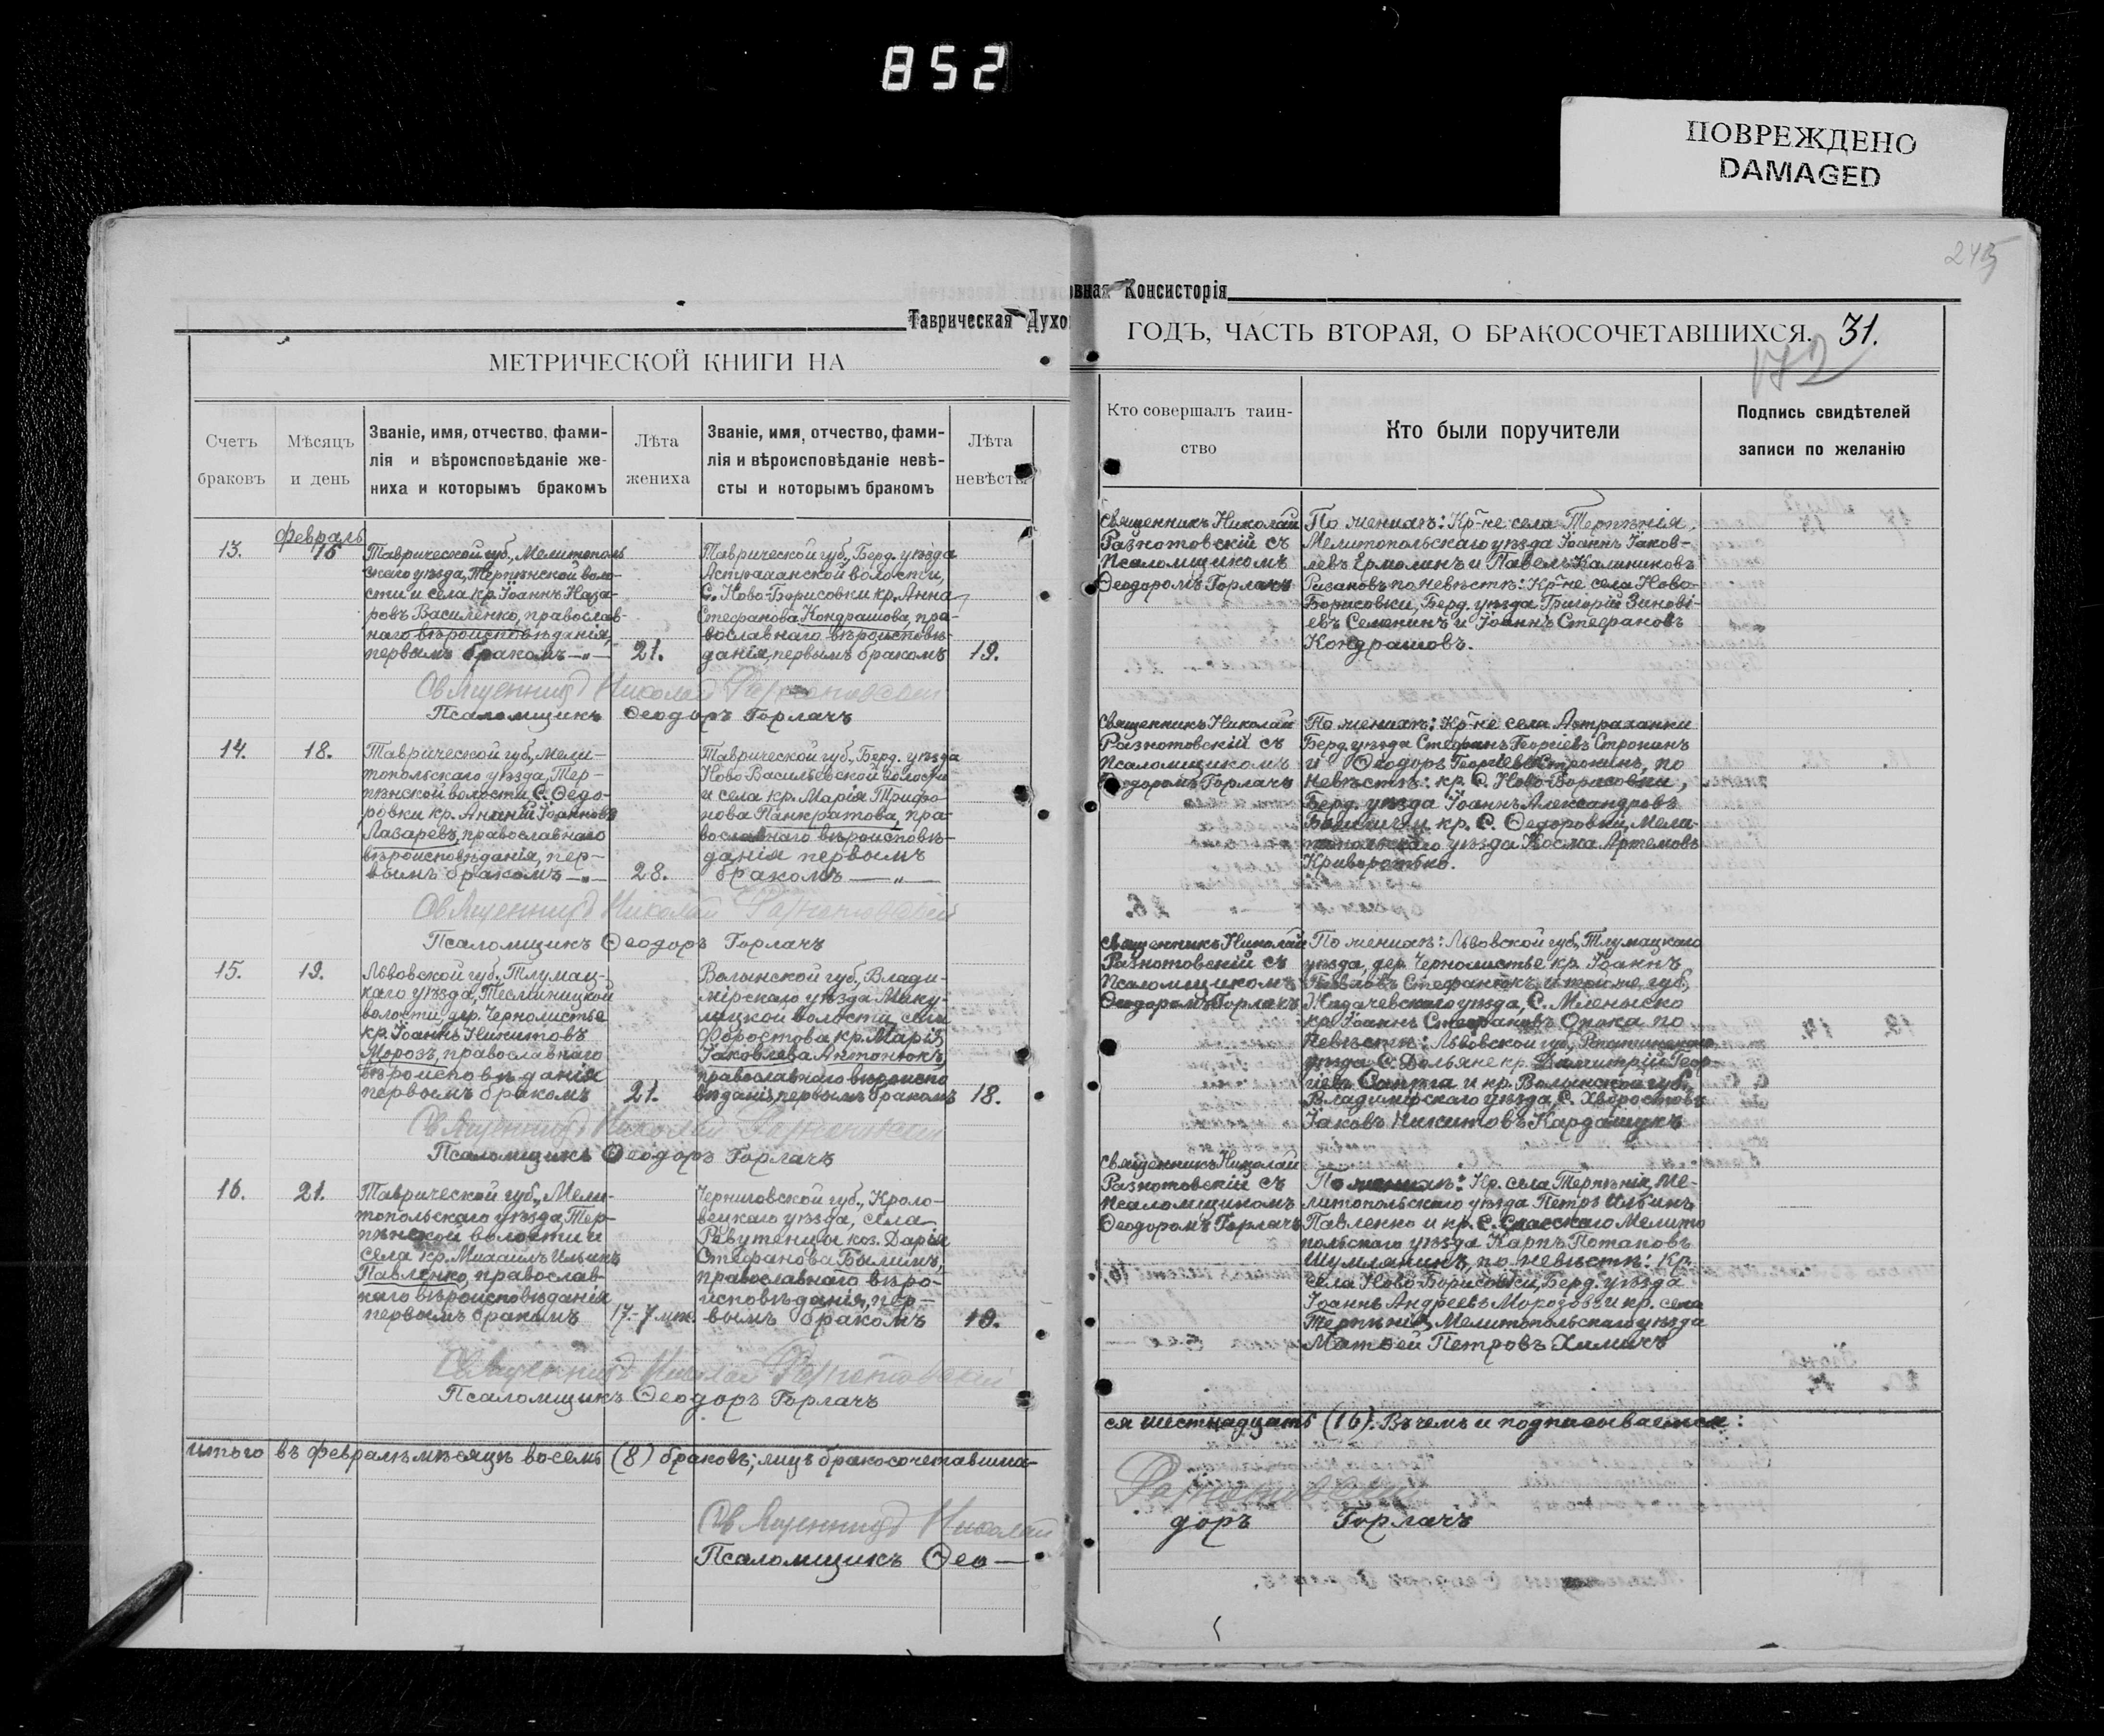 852
ПОВРЕЖДЕНО
DAMAGED
245
Таврическая Духовная Консисторія
МЕТРИЧЕСКОЙ КНИГИ НА
ГОДЪ, ЧАСТЬ ВТОРАЯ, О БРАКОСОЧЕТАВШИХСЯ. 31.
172
Счетъ
браковъ
Мѣсяцъ
и день
Званіе, имя, отчество, фами-
лія и вѣроисповѣданіе же-
ниха и которымъ бракомъ
Лѣта
жениха
Званіе, имя, отчество, фами-
лія и вѣроисповѣданіе невѣ-
сты и которымъ бракомъ
Лѣта
невѣсты
Кто совершалъ таин-
ство
Кто были поручители
Подпись свидѣтелей
записи по желанію
13.
Февраль
15
Таврической губ., Мелитополь
скаго уѣзда, Терпѣнской воло-
сти и села кр. Іоаннъ Наза-
ровъ Василенко, православ
наго вѣроисповѣданія,
первымъ бракомъ —„—
21.
Таврической губ., Берд. уѣзда
Астраханской волости,
С. Ново-Борисовки кр. Анна
Стефанова Кондрашова, пра-
вославнаго вѣроисповѣ-
данія, первымъ бракомъ
19.
Священникъ Николай
Разнотовскій съ
Псаломщикомъ
Ѳеодоромъ Горлачъ
По женихѣ: Кр-не села Терпѣнія,
Мелитопольскаго уѣзда Іоаннъ Іаков-
левъ Ермолинъ и Павелъ Калиниковъ
Ризановъ по невѣстѣ: Кр-не села Ново-
Борисовки, Берд. уѣзда Григорій Зинові-
евъ Семенинъ и Іоаннъ Стефановъ
Кондрашовъ.
Священникъ Николай Разнотовскій
Псаломщикъ Ѳеодоръ Горлачъ
14.
18.
Таврической губ., Мели-
топольскаго уѣзда, Тер-
пѣнской волости С. Ѳедо-
ровки кр. Ананій Іоанновъ
Лазаревъ, православнаго
вѣроисповѣданія, пер-
вымъ бракомъ —„—
28.
Таврической губ., Берд. уѣзда
Ново Васильевской волости
и села кр. Марія Трифо-
нова Панкратова, пра-
вославнаго вѣроисповѣ-
данія первымъ
бракомъ —„—
Священникъ Николай
Разнотовскій съ
Псаломщикомъ
Ѳеодоромъ Горлачъ
По женихѣ: Кр-не села Астраханки
Берд. уѣзда Стефанъ Георгіевъ Стронинъ
и Ѳеодоръ Георгіевъ Стронинъ, по
невѣстѣ: кр. С. Ново-Борисовки,
Берд. уѣзда Іоаннъ Александровъ
и кр. С. Ѳедоровки, Мели-
топольскаго уѣзда Косма Артемовъ
Криворотько.
Священникъ Николай Разнотовскій
Псаломщикъ Ѳеодоръ Горлачъ
15.
19.
Львовской губ., Тлумац-
каго уѣзда, Тесминицкой
волости дер. Чернолистье
кр. Іоаннъ Никитовъ
Морозъ, православнаго
вѣроисповѣданія
первымъ бракомъ
21.
Волынской губ., Влади-
мірскаго уѣзда Мику-
лицкой волости села
Форостова кр. Марія
Іаковлева Антонюкъ,
православнаго вѣроиспо
вѣданія, первымъ бракомъ
18.
Священникъ Николай
Разнотовскій съ
Псаломщикомъ
Ѳеодоромъ Горлачъ
По женихѣ: Львовской губ., Тлумацкаго
уѣзда, дер. Чернолистье кр. Іоаннъ
Павловъ Стефанюкъ и той же губ.,
Жидачевскаго уѣзда, С. Мленыско
кр. Іоаннъ Стефановъ Опока по
Невѣстѣ: Львовской губ.,
уѣзда С. Дольяне кр. Димитрій Геор-
гіевъ Сапѣга и кр. Волынской губ.,
Владимірскаго уѣзда, С. Хворостовъ
Іаковъ Никитовъ Кардашукъ
Священникъ Николай Разнотовскій
Псаломщикъ Ѳеодоръ Горлачъ
16.
21.
Таврической губ., Мели-
топольскаго уѣзда, Тер-
пѣнской волости и
села кр. Михаилъ Ильинъ
Павленко, православ-
наго вѣроисповѣданія
первымъ бракомъ
17-7 мѣс.
Черниговской губ., Кроло-
вецкаго уѣзда, села
Ревутенцы коз. Дарья
Стефанова Былимъ,
православнаго вѣро-
исповѣданія, пер-
вымъ бракомъ
Священникъ Николай
Разнотовскій съ
Псаломщикомъ
Ѳеодоромъ Горлачъ
По женихѣ: Кр. села Терпѣнія, Ме-
литопольскаго уѣзда Петръ Ильинъ
Павленко и кр. С. Спасскаго Мелито
польскаго уѣзда Карпъ Потаповъ
Шумлянинъ, по невѣстѣ: Кр.
села Ново-Борисовки, Берд. уѣзда
Іоаннъ Андреевъ Морозовъ и кр. села
Терпѣнія, Мелитопольскаго уѣзда
Матвей Петровъ Химичъ
Священникъ Николай Разнотовскій
Псаломщикъ Ѳеодоръ Горлачъ
Итого въ Февралѣ мѣсяцѣ восемь (8) браковъ; лицъ бракосочетавших-
ся шестнадцать (16). Въ чемъ и подписываемся:
Священникъ Николай Разнотовскій
Псаломщикъ Ѳео-
доръ Горлачъ